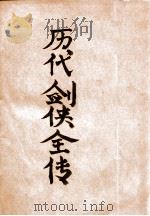 历代剑侠全传
mtoou.info